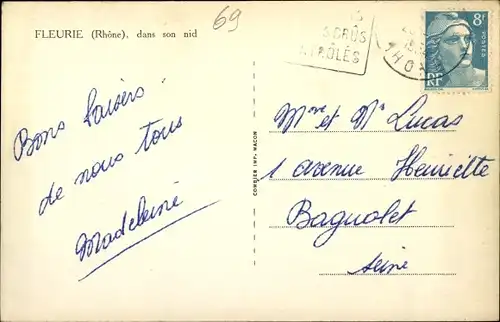 69
FLEURIE (Rhône), dans son nid
CRUS
8F
POSTES
RF
Bons baisers
de nous tous
Madeleine
COMBIER IMP. MACON
Mme et Mr Lucas
1 avenue Henriette
Bagnolet
Seine